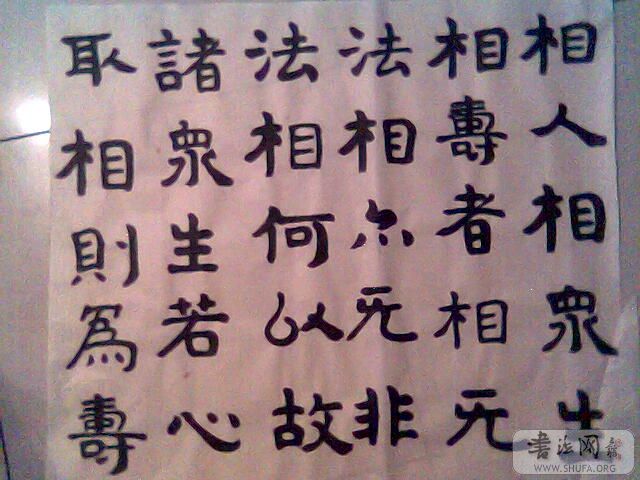 相人相眾生
相壽者相无
法相亦无非
法相何以故
諸眾生若心
取相則為壽
书法网
WWW.SHUFA.ORG